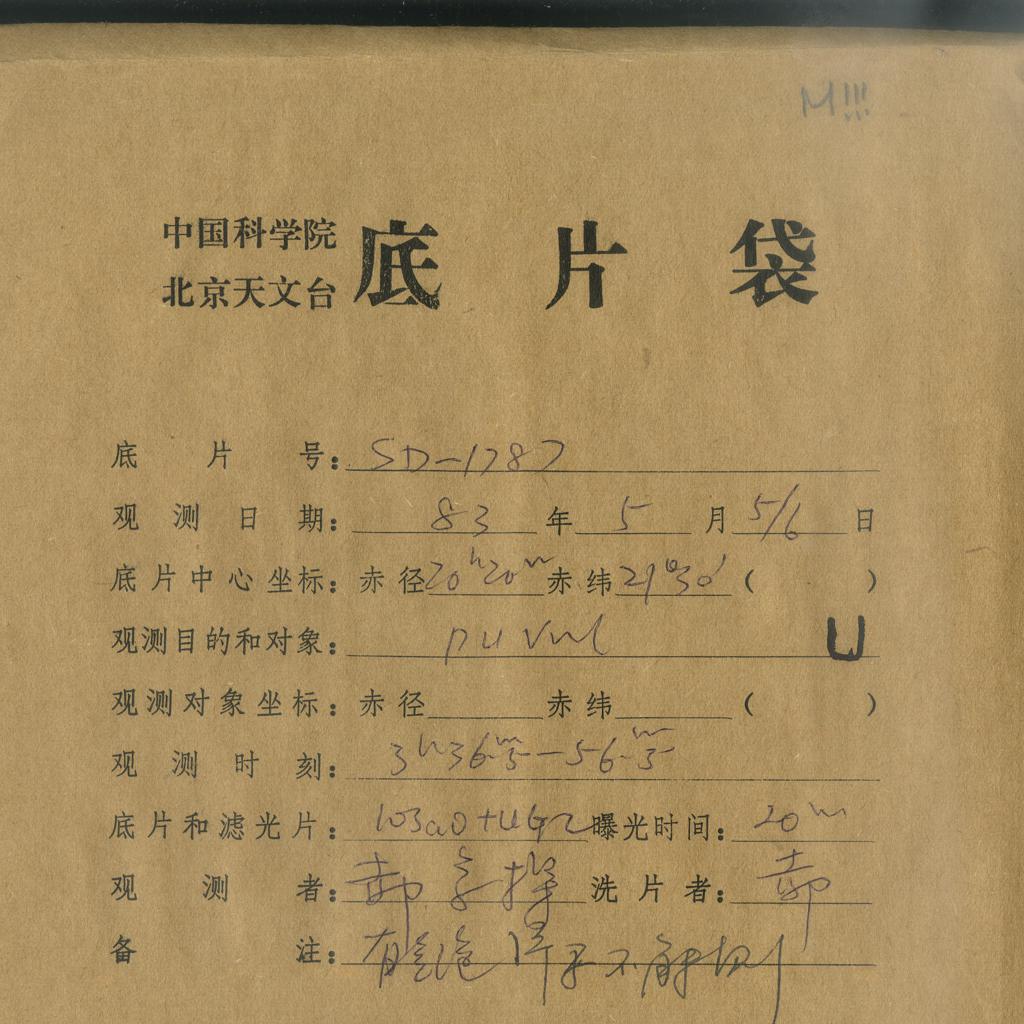 M!!!
中国科学院
北京天文台
底片袋
底片号：SD-1787
观测日期：83年5月5/6日
底片中心坐标：赤径20ʰ20ᵐ赤纬21°30′（ ）
观测目的和对象：PU Vul U
观测对象坐标：赤径 赤纬 （ ）
观测时刻：3ʰ36ᵐ.5—56ᵐ.5
底片和滤光片：103aO+UG2曝光时间：20ᵐ
观测者：郝 洗片者：郝
备注：有气泡 不能